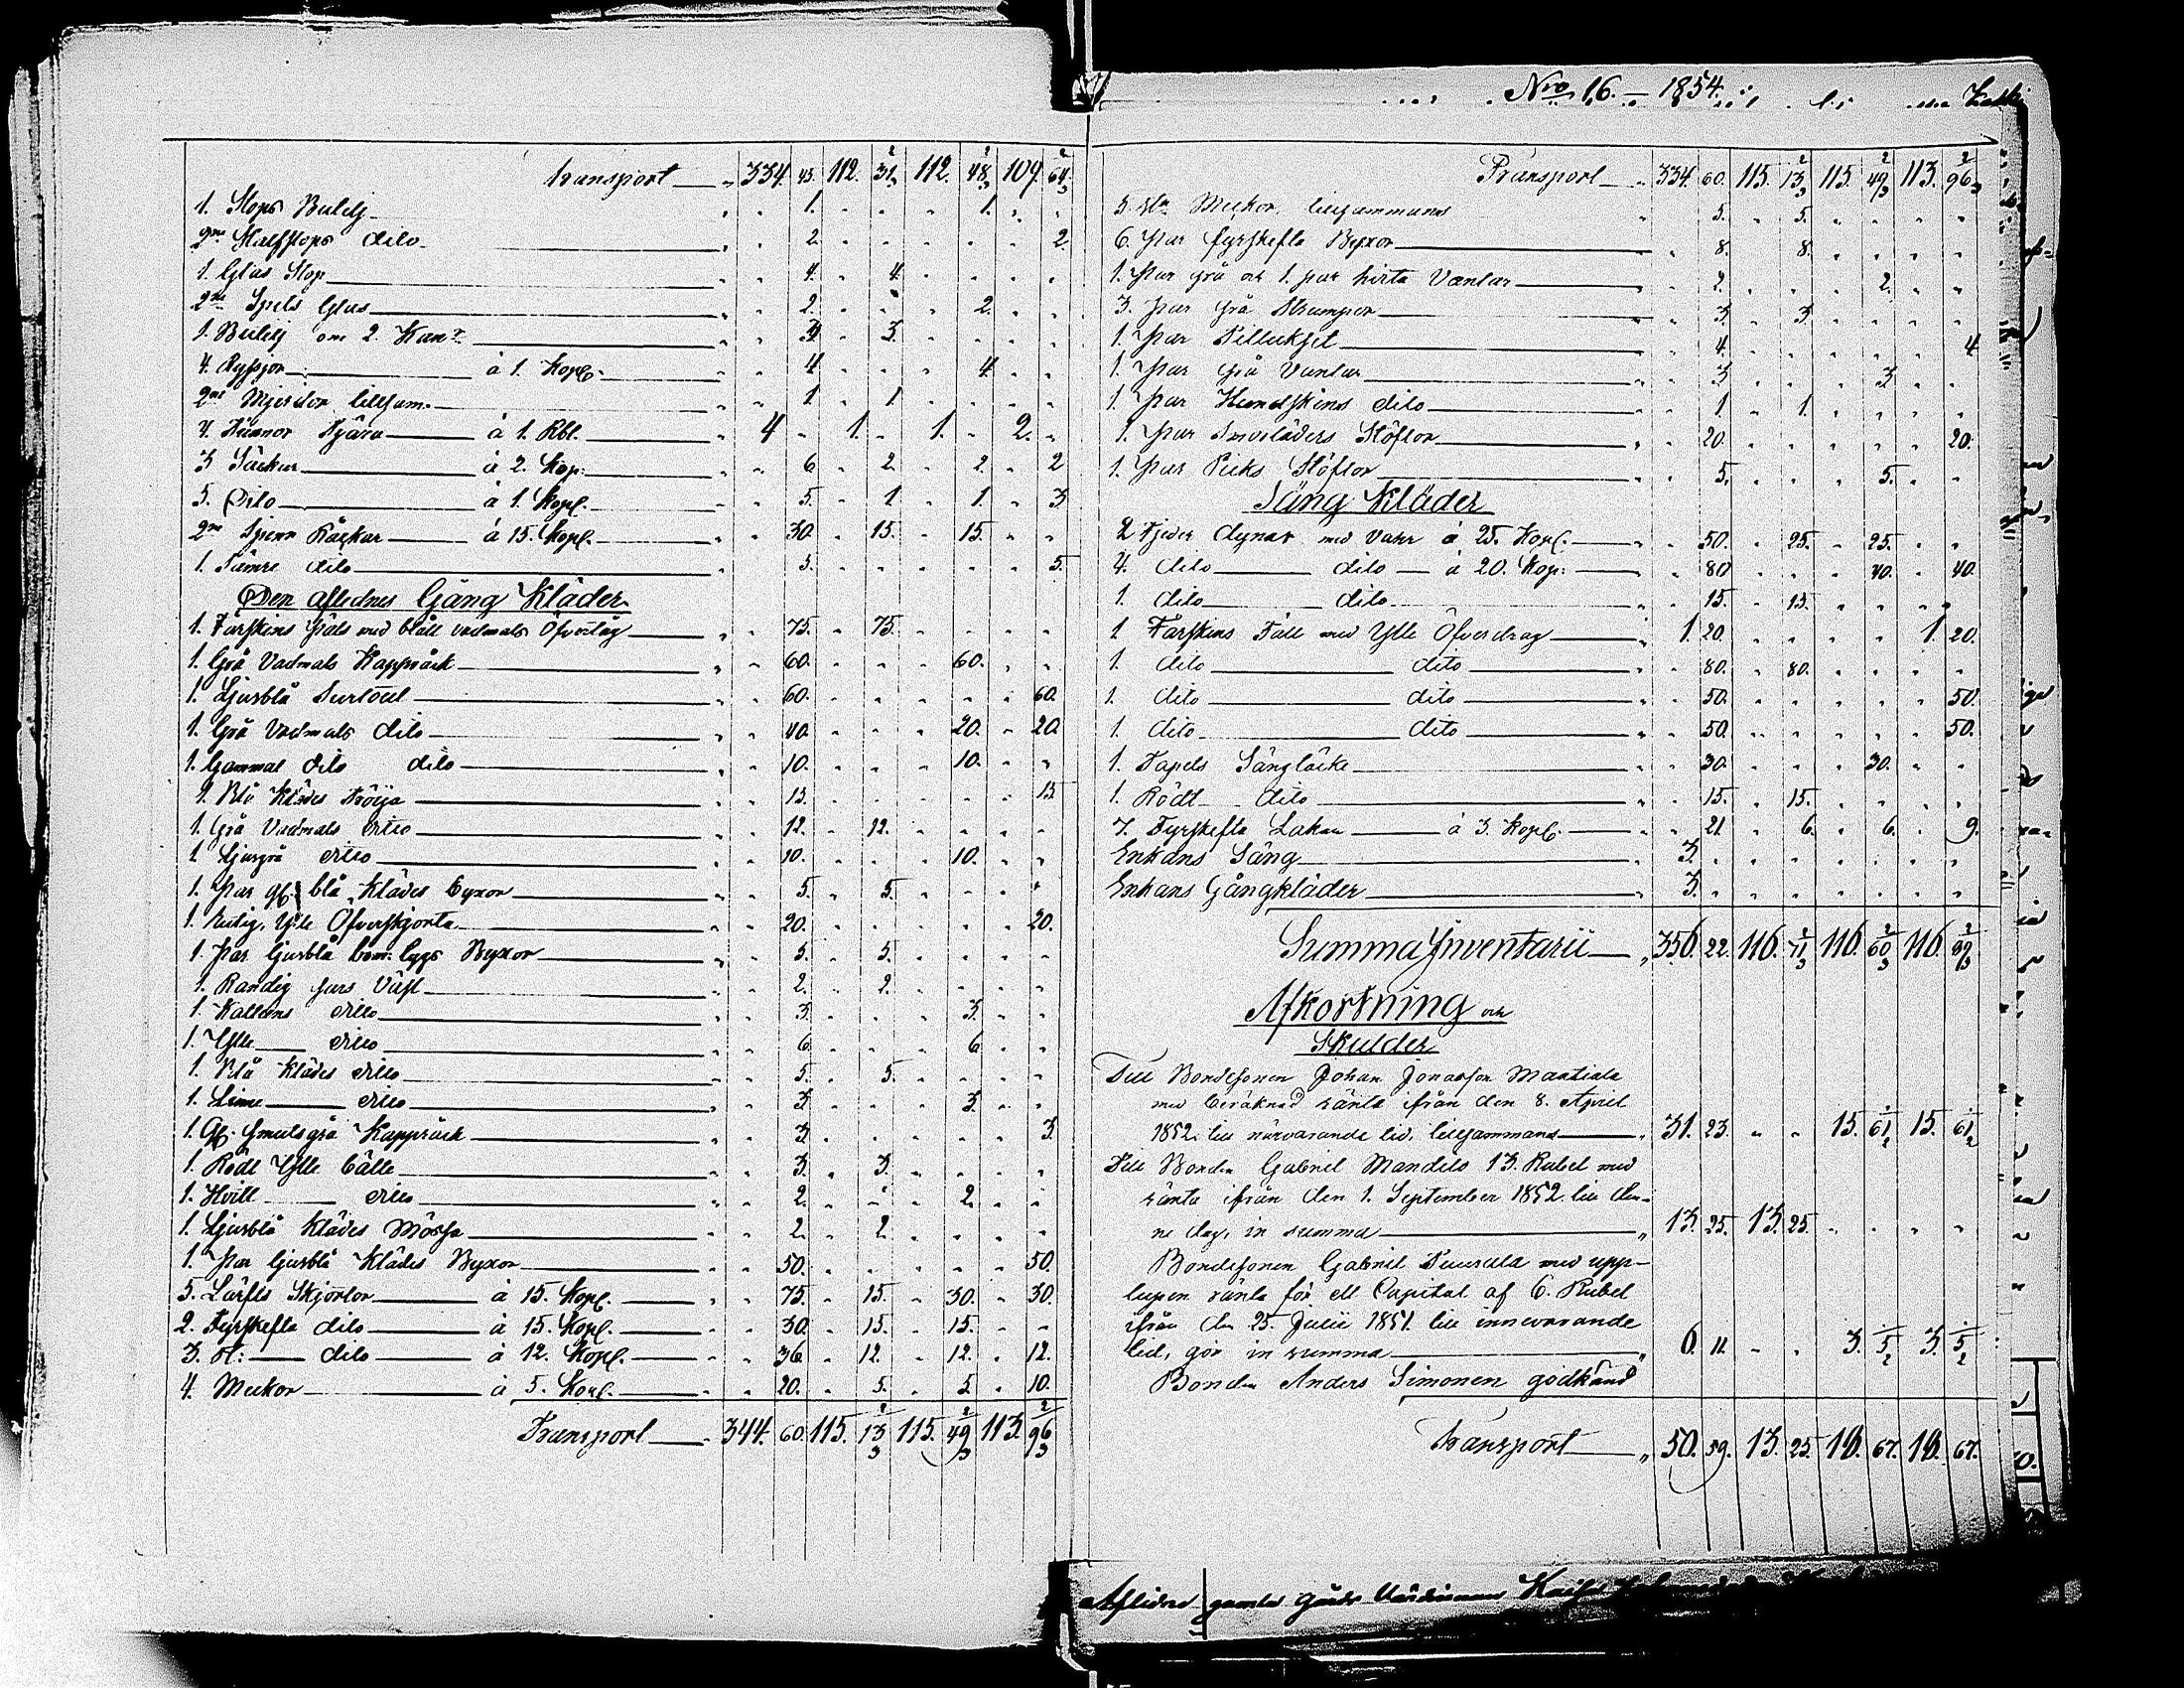 Transport 334. 45. 112. 31 2/3 112. 48 2/3 109. 64 2/3
1. Stops Butelj 1. 1.
2ne Halfstops dito 2. 2.
1. Glas Stop 4. 4.
2ne Spets Glas 2. 2.
1. Butelj om 2. Kanr 3. 3.
4. Ryssjor à 1. Kop. 4. 4.
2ne Mjerdor tillsam. 1. 1.
4. Tunnor Tjära à 1. Rbl. 4. 1. 1. 2.
3 Säckar à 2. Kop. 6 2. 2. 2
5. Dito à 1. Kop. 5. 1. 1. 3
2ne Spenn Råckar à 15. Kop. 30. 15. 15.
1. Sämre dito 5. 5.
Den aflednes Gång Kläder
1. Fårskins Päls med blått vadmals Öfvertåg 75. 75.
1. Grå Vadmals Kappråck 60. 60.
1. Ljusblå Surtout 60. 60.
1. Grå Vadmals dito 40. 20. 20
1. Gammal dito dito 10. 10.
1. Blå Klädes Tröija 15. 15
1. Grå Vadmals dito 12. 12.
1. Ljusgrå dito 10. 10.
1. Par gl. blå Klädes Byxor 5. 5.
1. Rutig Ylle Öfverskjorta 20. 20.
1. Par ljusblå bom. tygs Byxor 5. 5.
1. Randig Väst 2. 2.
1. Kattuns dito 3. 3.
1. Ylle dito 6 6.
1. Blå Klädes dito 5. 5.
1. Linne dito 3 3.
1. Gl. smutsgrå Kappråck 3. 3.
1. Rödt Ylle Bälte 3. 3.
1. Hvitt dito 2. 2.
1. Ljusblå Klädes Mössa 2. 2.
1. Par ljusblå Klädes Byxor 50. 50.
5. Lärfts Skjortor à 15. Kop. 75. 15. 30. 30.
2. Fyrskefta dito à 15. Kop. 30. 15. 15.
3. st: dito à 12. Kop. 36 12. 12. 12.
4. Muckor à 5. Kop. 20. 5. 5. 10.
Transport 344. 60. 115. 13 2/3 115. 49 2/3 113. 96 2/3
Nro 16. — 1854.
Transport 334. 60. 115. 13 2/3 115. 49 2/3 113. 96 2/3
5. sta Muckor tillsammans 5. 5.
6. Par fyrskefta Byxor 8. 8.
1. Par grå och 1. par hvita Vantar 2. 2.
3. Par grå Strumpor 3. 3
1. Par 4. 4
1. Par grå Vantar 3 3
1. Par Hundskins dito 1 1.
1. Par Smorläders Stöflor 20. 20.
1. Par Pieks Stöflor 5. 5.
Säng Kläder
2 Fjeder dynor med Vahr à 25. Kop. 50. 25. 25.
4. dito dito à 20. Kop. 80 40. 40.
1. dito dito 15. 15.
1 Fårskins Fäll med Ylle Öfverdrag 1. 20. 1. 20.
1. dito dito 80. 80.
1. dito dito 50. 50.
1. dito dito 50. 50.
1. Tapets Sängtäcke 30. 30.
1. Rödt dito 15. 15.
7. Fyrskefta Lakan à 3. Kop. 21. 6. 6. 9.
Enkans Säng 3.
Enkans Gångkläder 3.
Summa Inventarii 356. 22. 116. 71 2/3 116. 60 2/3 116. 97 2/3
Afkortning och
Skulder
Till Bondesonen Johan Jonasson Mantiala
med beräknad ränta ifrån den 8. April
1852. till närvarande tid, tillsammans 31. 23. 15. 61 1/2 15. 61 1/2
Till Bonden Gabriel Mandelo 13. Rubel med
ränta ifrån den 1. September 1852. till den-
ne dag, in summa 13. 25. 13. 25.
Bondesonen Gabriel med upp-
lupen ränta för ett Capital af 6. Rubel
ifrån den 25. Julii 1851. till innevarande
tid, gör in summa 6. 11 3. 5 1/2 3. 5 1/2
Bonden Anders Simonen godkänd
Transport 50. 59. 13. 25. 18. 67. 18. 67.
Aflidne gamla Gårds Värdinnan Kaisa